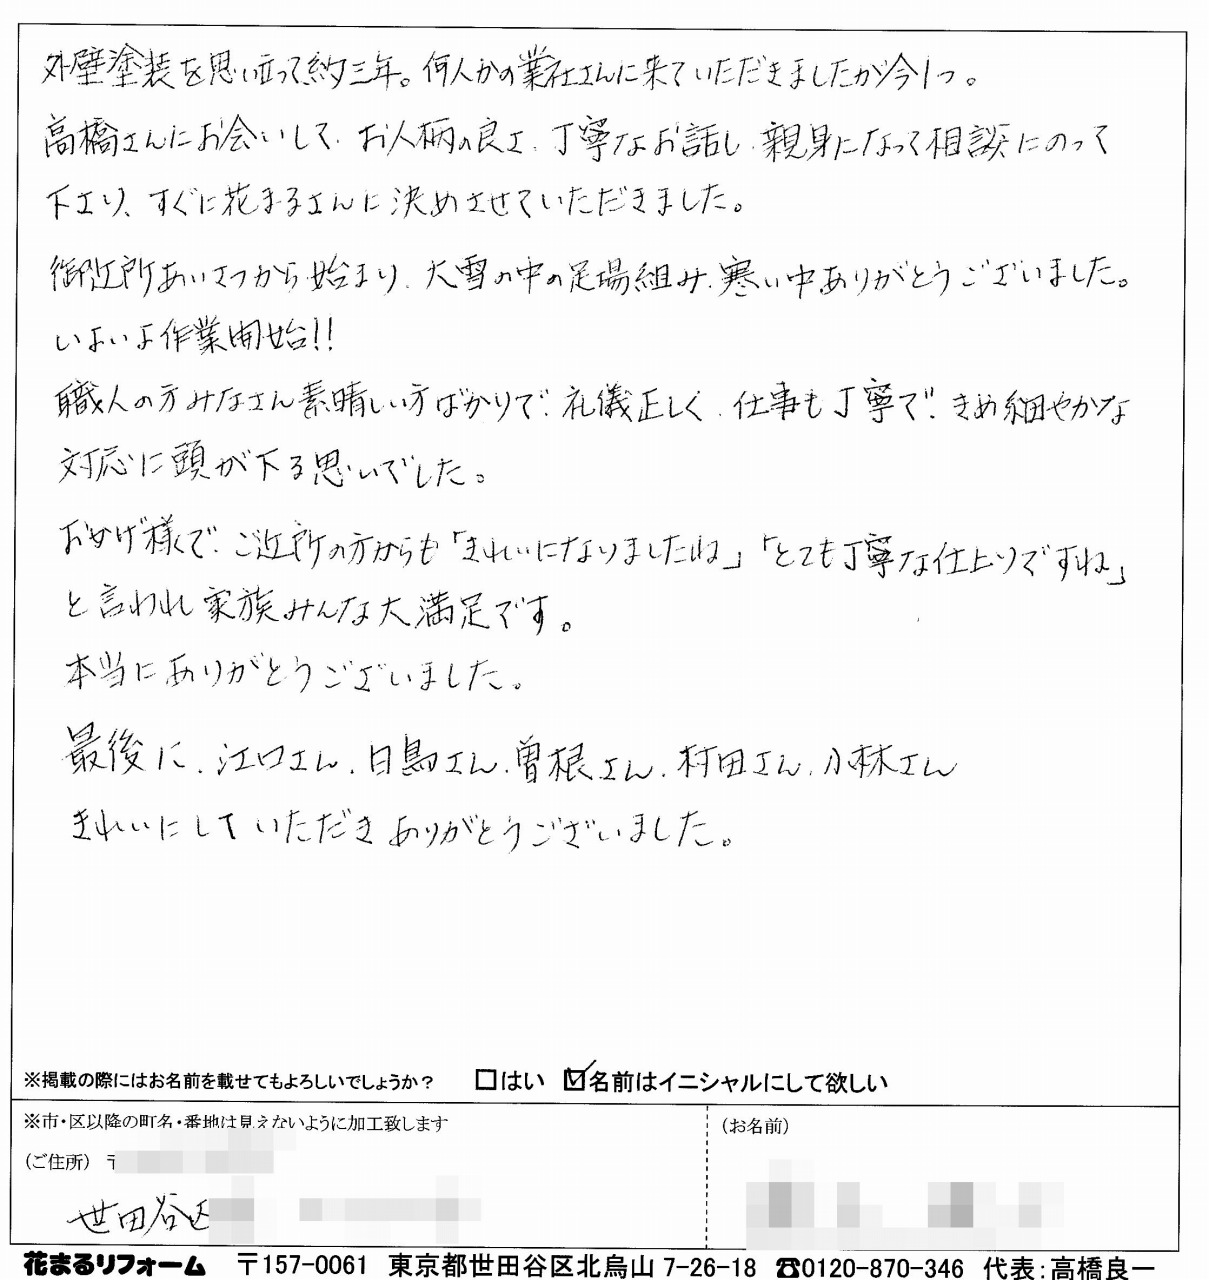 外壁塗装を思い立って約三年。何人かの業社さんに来ていただきましたが今1つ。
高橋さんにお会いして、お人柄の良さ、丁寧なお話し、親身になって相談にのって
下さり、すぐに花まるさんに決めさせていただきました。
御近所あいさつから始まり、大雪の中の足場組み、寒い中ありがとうございました。
いよいよ作業開始!!
職人の方みなさん素晴しい方ばかりで、礼儀正しく、仕事も丁寧で、きめ細やかな
対応に頭が下る思いでした。
おかげ様で、ご近所の方からも「きれいになりましたね」「とても丁寧な仕上りですね」
と言われ家族みんな大満足です。
本当にありがとうございました。
最後に、江口さん、日鳥さん、曽根さん、村田さん、小林さん
きれいにしていただきありがとうございました。
※掲載の際にはお名前を載せてもよろしいでしょうか？ □はい ☑名前はイニシャルにして欲しい
※市・区以降の町名・番地は見えないように加工致します
(お名前)
(ご住所) 〒
世田谷区
花まるリフォーム 〒157-0061 東京都世田谷区北烏山 7-26-18 ☎0120-870-346 代表:高橋良一